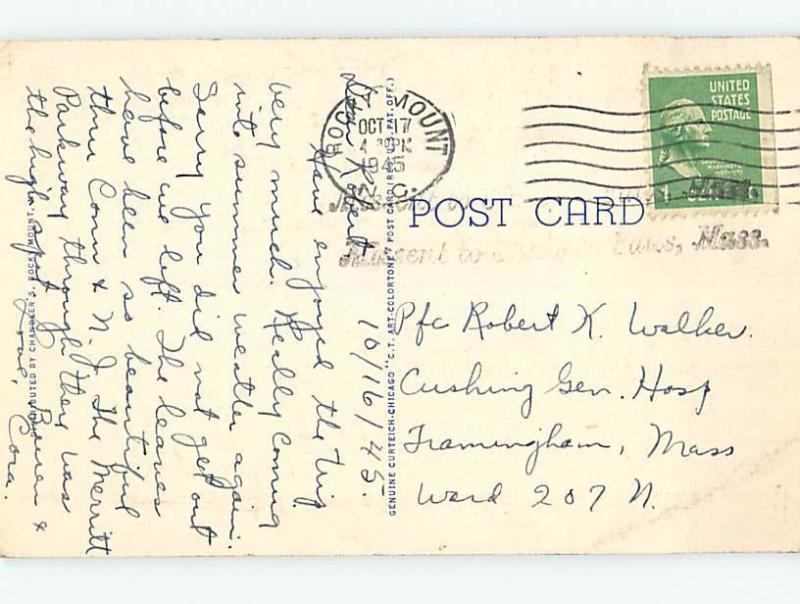 ROCKY MOUNT
OCT 17
4 30 PM
1945
N. C.
UNITED
STATES
POSTAGE
Missent to Falls, Mass.
POST CARD
10/16/45-
Dear Robert
Have enjoyed the trip
very much. Really coming
into summer weather again.
Sorry you did not get out
before we left. The leaves
have been so beautiful
thru Conn & N. J. The Merritt
Parkway through they was
the high spot
Love,
&
Cora.
Pfc Robert K. Walker.
Cushing Gen. Hosp
Framingham, Mass
Ward 207 N.
GENUINE CURTEICH-CHICAGO "C.T. ART-COLORTONE" POST CARD (REG. U.S. PAT. OFF.)
DISTRIBUTED BY ROCKY MOUNT, N.